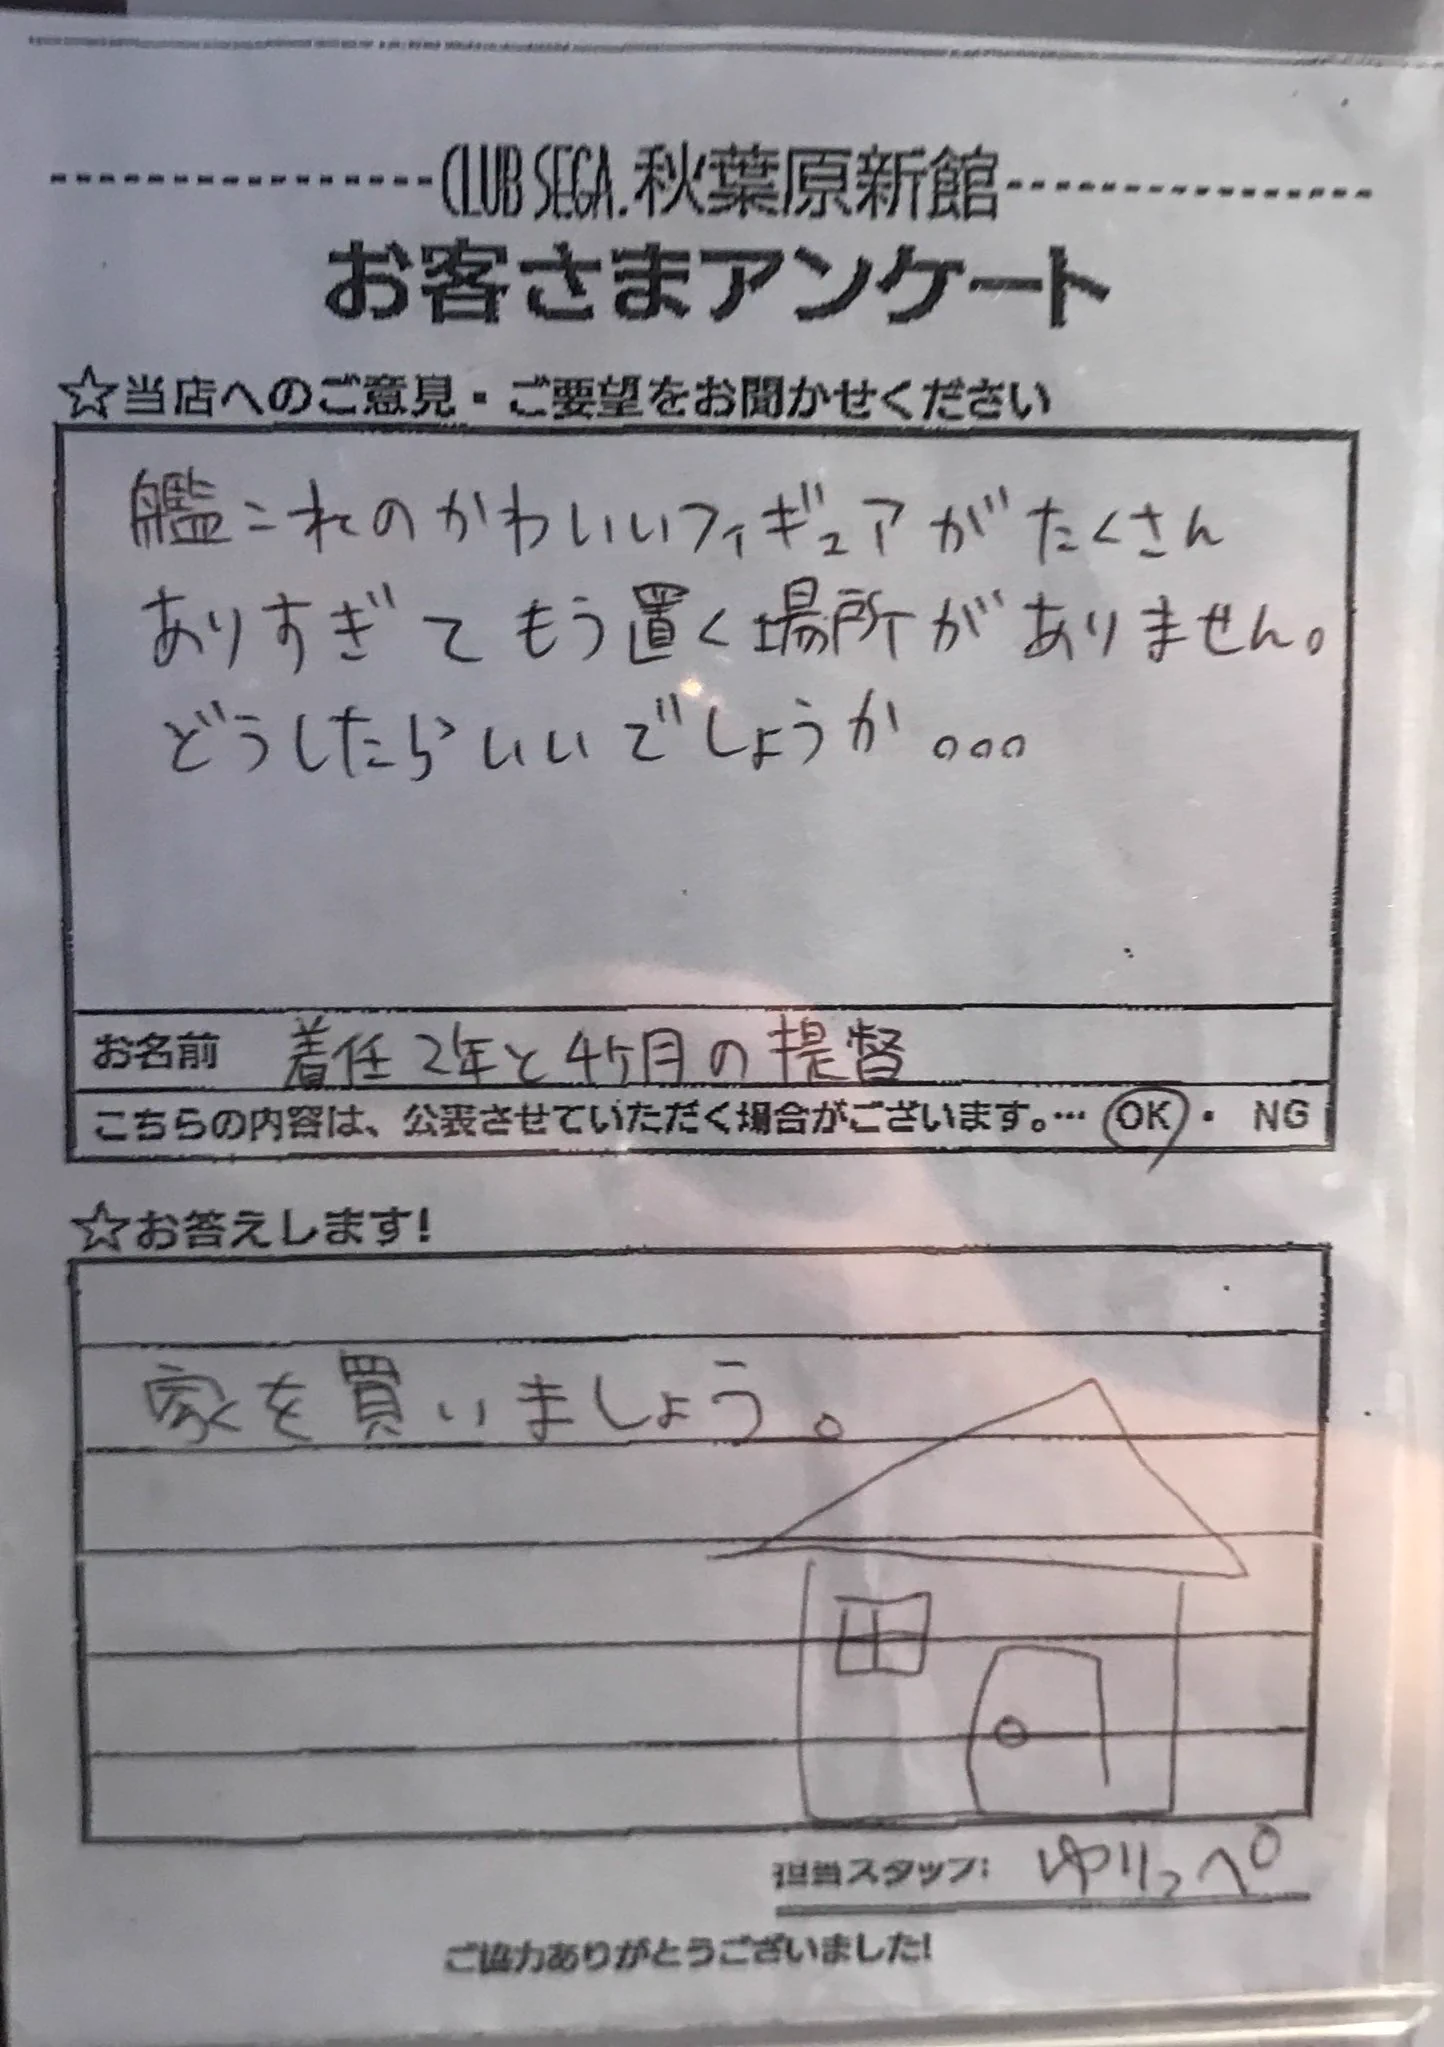 CLUB SEGA.秋葉原新館
お客さまアンケート
☆当店へのご意見・ご要望をお聞かせください
艦これのかわいいフィギュアがたくさん
ありすぎてもう置く場所がありません。
どうしたらいいでしょうか。。。
お名前 着任2年と4ヶ月の提督
こちらの内容は、公表させていただく場合がございます。… OK ・ NG
☆お答えします!
家を買いましょう。
担当スタッフ: ゆりっぺ
ご協力ありがとうございました!